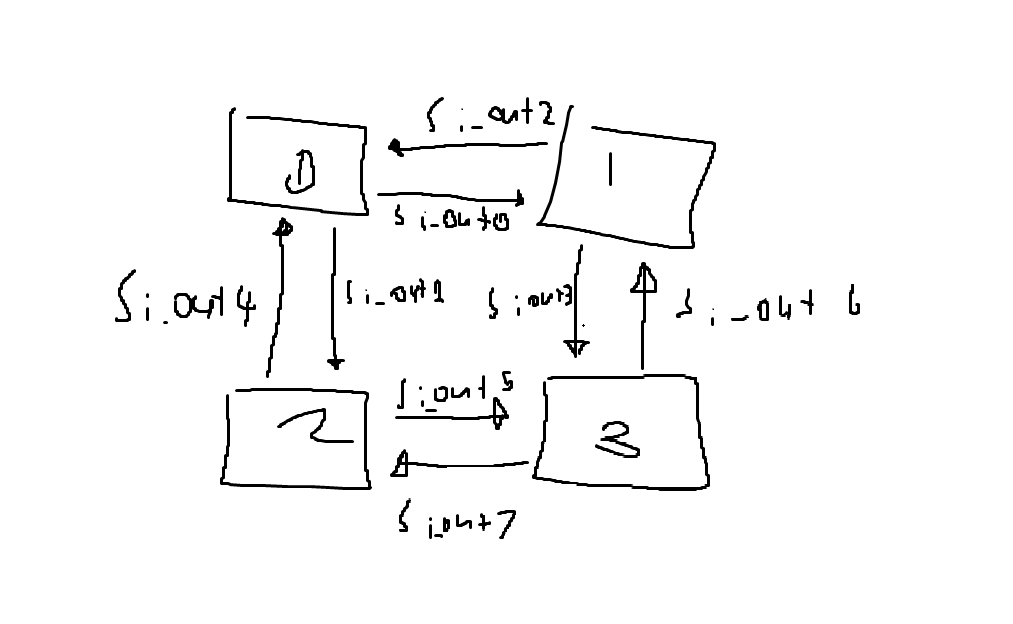 Si_out2
0
1
Si_out0
Si_out4
Si_out1
Si_out3
Si_out 6
Si_out5
2
3
Si_out7